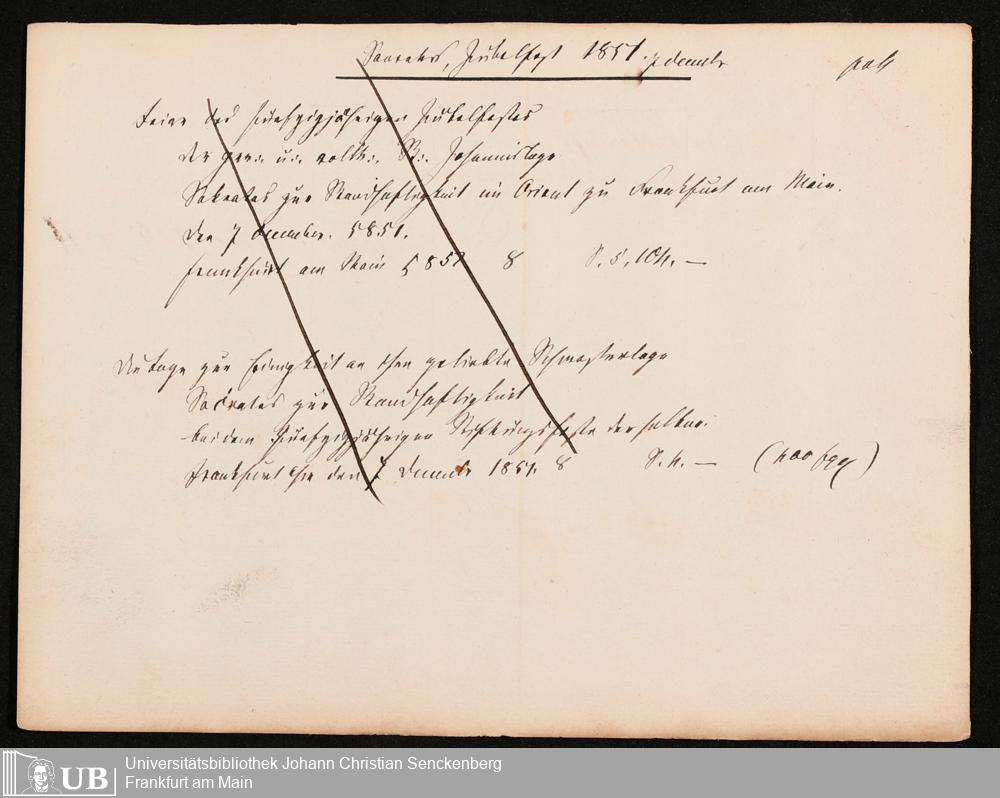 Socrates, Jubelfest 1851. 7 decembr
Feier des fünfzigjährigen Jubelfestes
der ger:. u:. vollk:. St:. Johannisloge
Sokrates zur Standhaftigkeit im Orient zu Frankfurt am Main.
den 7 december. 5851.
Frankfurt am Main 5852 8 S. 5, 104. —
Die Loge zur Einigkeit an ihre geliebte Schwesterloge
Socrates zur Standhaftigkeit
bei dem fünfzigjährigen Stiftungsfeste derselben.
Frankfurt den 7 Decembr 1851. 8 S. 4. —
UB
Universitätsbibliothek Johann Christian Senckenberg
Frankfurt am Main